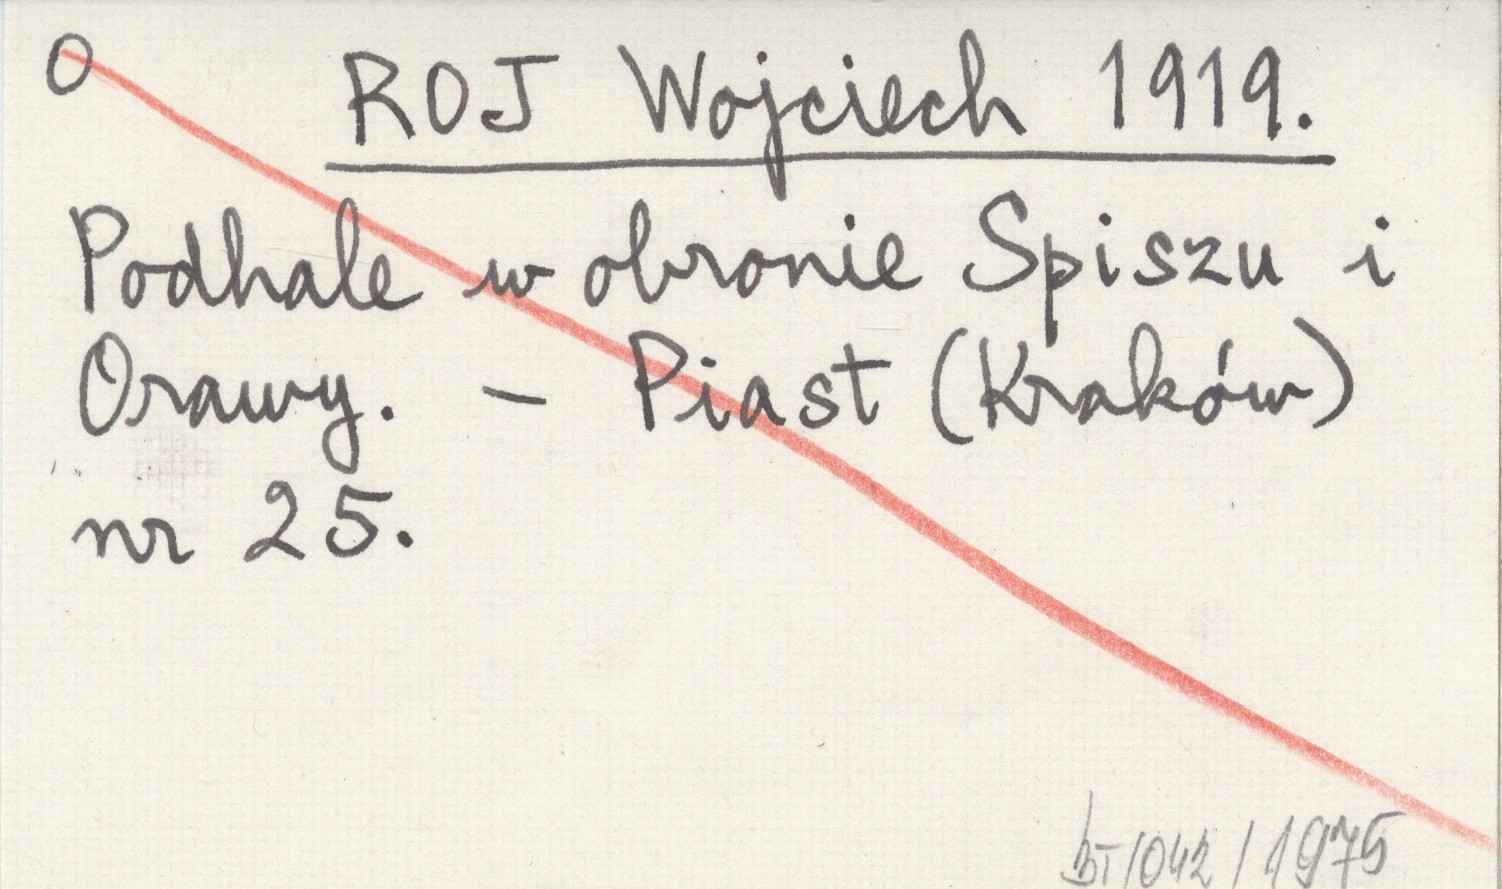 O ROJ Wojciech 1919.
Podhale w obronie Spiszu i
Orawy. – Piast (Kraków)
nr 25.
/042/1975